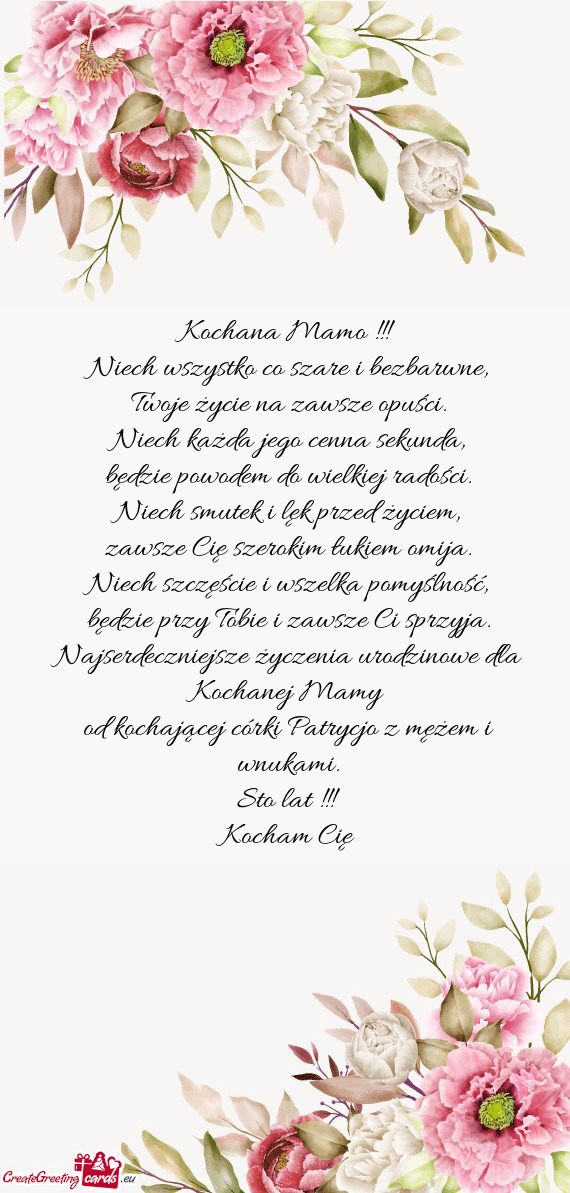 Kochana Mamo !!!
Niech wszystko co szare i bezbarwne,
Twoje życie na zawsze opuści.
Niech każda jego cenna sekunda,
będzie powodem do wielkiej radości.
Niech smutek i lęk przed życiem,
zawsze Cię szerokim łukiem omija.
Niech szczęście i wszelka pomyślność,
będzie przy Tobie i zawsze Ci sprzyja.
Najserdeczniejsze życzenia urodzinowe dla
Kochanej Mamy
od kochającej córki Patrycjo z mężem i
wnukami.
Sto lat !!!
Kocham Cię
CreateGreeting cards .eu